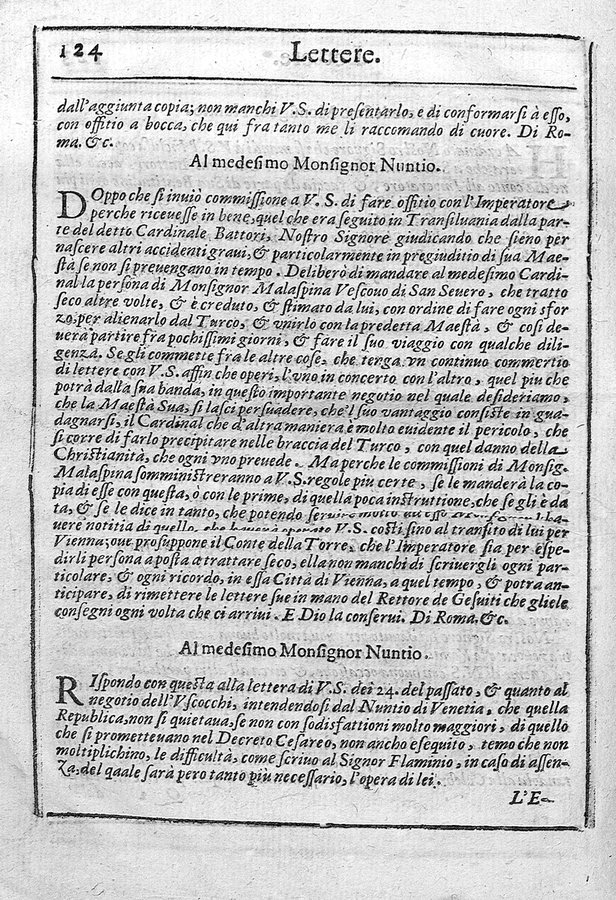 124 Lettere.
dall'aggiunta copia; non manchi V.S. di presentarlo, e di conformarsi à esso,
con offitio a bocca, che qui fra tanto me li raccomando di cuore. Di Ro-
ma. &c.
Al medesimo Monsignor Nuntio.
DOppo che si inuiò commissione a V. S. di fare offitio con l'Imperatore
perche riceuesse in bene, quel che era seguito in Transiluania dalla par-
te del detto Cardinale Battori, Nostro Signore giudicando che sieno per
nascere altri accidenti graui, & particolarmente in pregiuditio di sua Mae-
stà se non si preuengano in tempo. Deliberò di mandare al medesimo Cardi-
nal la persona di Monsignor Malaspina Vescouo di San Seuero, che tratto
seco altre volte, & è creduto, & stimato da lui, con ordine di fare ogni sfor
zo, per alienarlo dal Turco, & vnirlo con la predetta Maestà, & cosi de-
uerà partire fra pochissimi giorni, & fare il suo viaggio con qualche dili-
genza. Se gli commette fra le altre cose, che tenga vn continuo commertio
di lettere con V.S. affin che operi, l'vno in concerto con l'altro, quel piu che
potrà dalla sua banda, in questo importante negotio nel quale desideriamo,
che la Maestà Sua, si lasci persuadere, che'l suo vantaggio consiste in gua-
dagnarsi, il Cardinal che d'altra maniera è molto euidente il pericolo, che
si corre di farlo precipitare nelle braccia del Turco, con quel danno della
Christianità, che ogni vno preuede. Ma perche le commissioni di Monsig.
Malaspina somministreranno a V.S. regole piu certe, se le manderà la co-
pia di esse con questa, o con le prime, di quella poca instruttione, che se gli è da
ta, & se le dice in tanto, che potendo seruire molto ad esso l'ha-
uere notitia di quello, che hauerà operato V.S. costì sino al transito di lui per
Vienna; oue prosuppone il Conte della Torre, che l'Imperatore sia per espe-
dirli persona à posta a trattare seco, ella non manchi di scriuergli ogni par-
ticolare, & ogni ricordo, in essa Città di Vienna, a quel tempo, & potra an-
ticipare, di rimettere le lettere sue in mano del Rettore de Gesuiti che gliele
consegni ogni volta che ci arriui. E Dio la conserui. Di Roma. &c.
Al medesimo Monsignor Nuntio.
RIspondo con questa alla lettera di V.S. dei 24. del passato, & quanto al
negotio dell'Vscocchi, intendendosi dal Nuntio di Venetia, che quella
Republica, non si quietaua, se non con sodisfattioni molto maggiori, di quello
che si promettevano nel Decreto Cesareo, non ancho esequito, temo che non
moltiplichino, le difficultà, come scriuo al Signor Flaminio, in caso di assen-
za, del qaale sarà pero tanto piu necessario, l'opera di lei.
L'E-